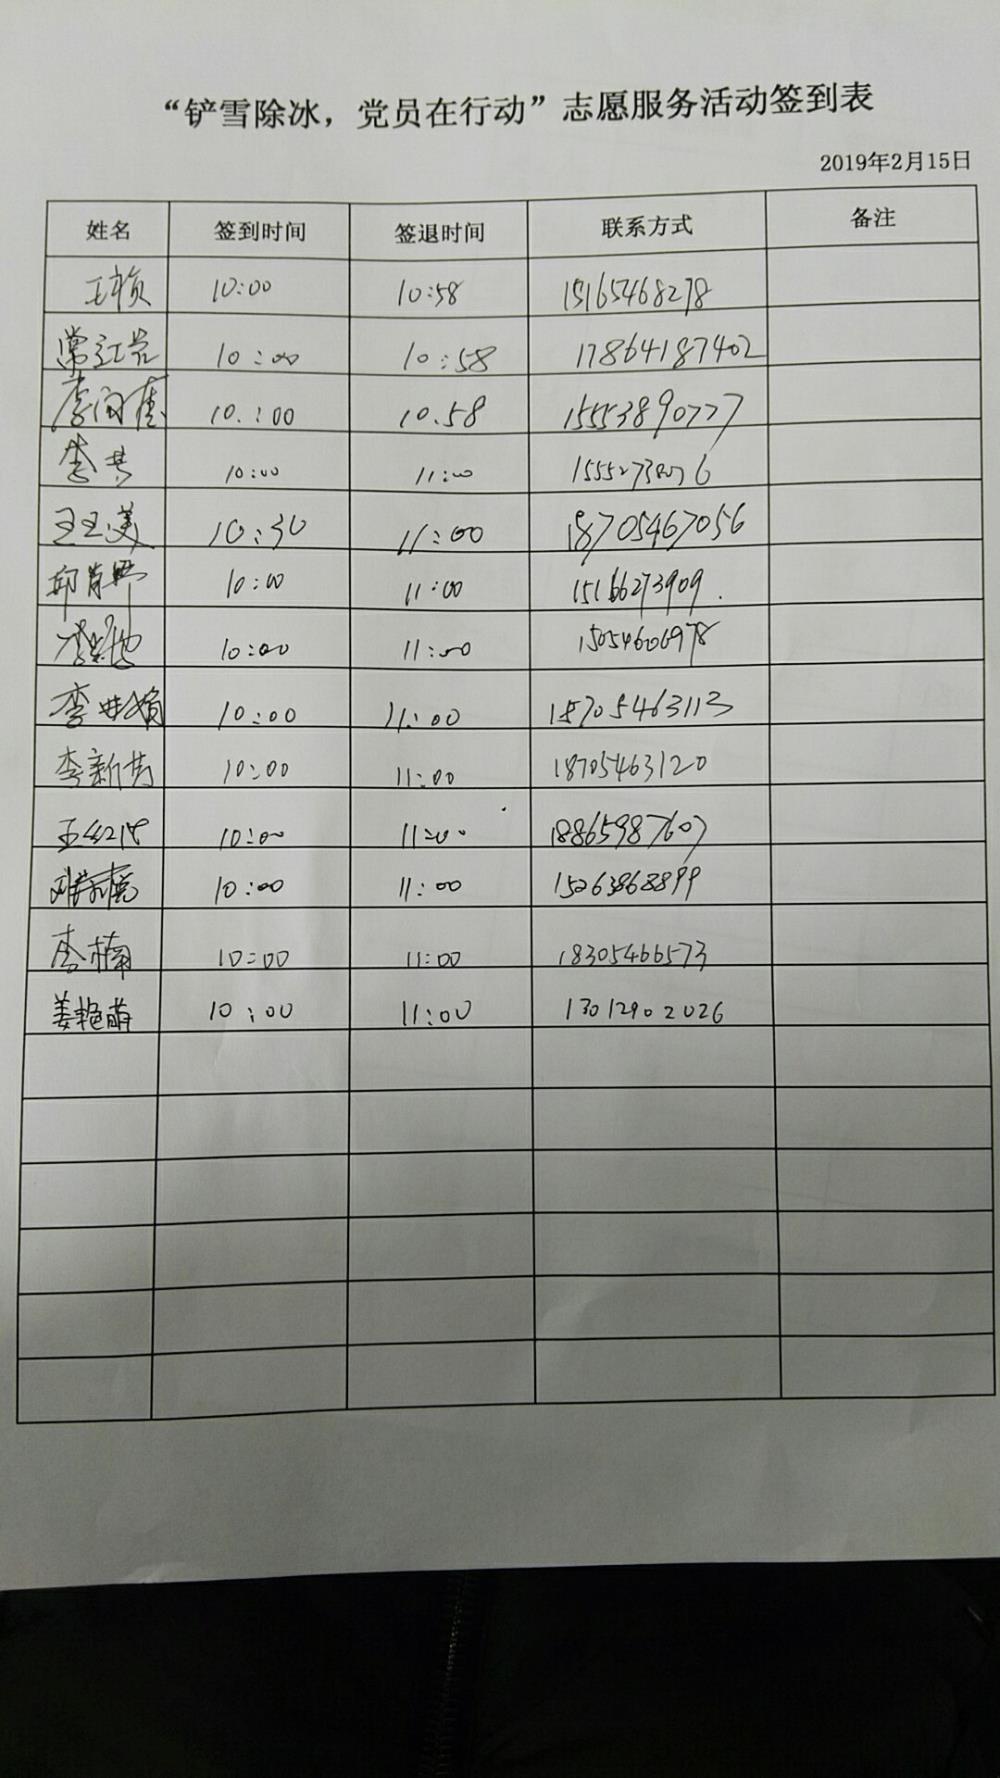 “铲雪除冰，党员在行动”志愿服务活动签到表
2019年2月15日
姓名 签到时间 签退时间 联系方式 备注
王祯 10:00 10:58 15165468278
常江 10:00 10:58 17864187402
李 10:00 10.58 15553890777
李 10:00 11:00
王玉美 10:30 11:00 18705467056
邱肖 10:00 11:00 15166273909.
10:00 11:00 15054606978
李 娟 10:00 11:00 18705463113
李新芳 10:00 11:00 18705463120
王红 10:00 11:00 18865987607
10:00 11:00 15263868899
李楠 10:00 11:00 18305466573
姜艳萌 10:00 11:00 13012902026